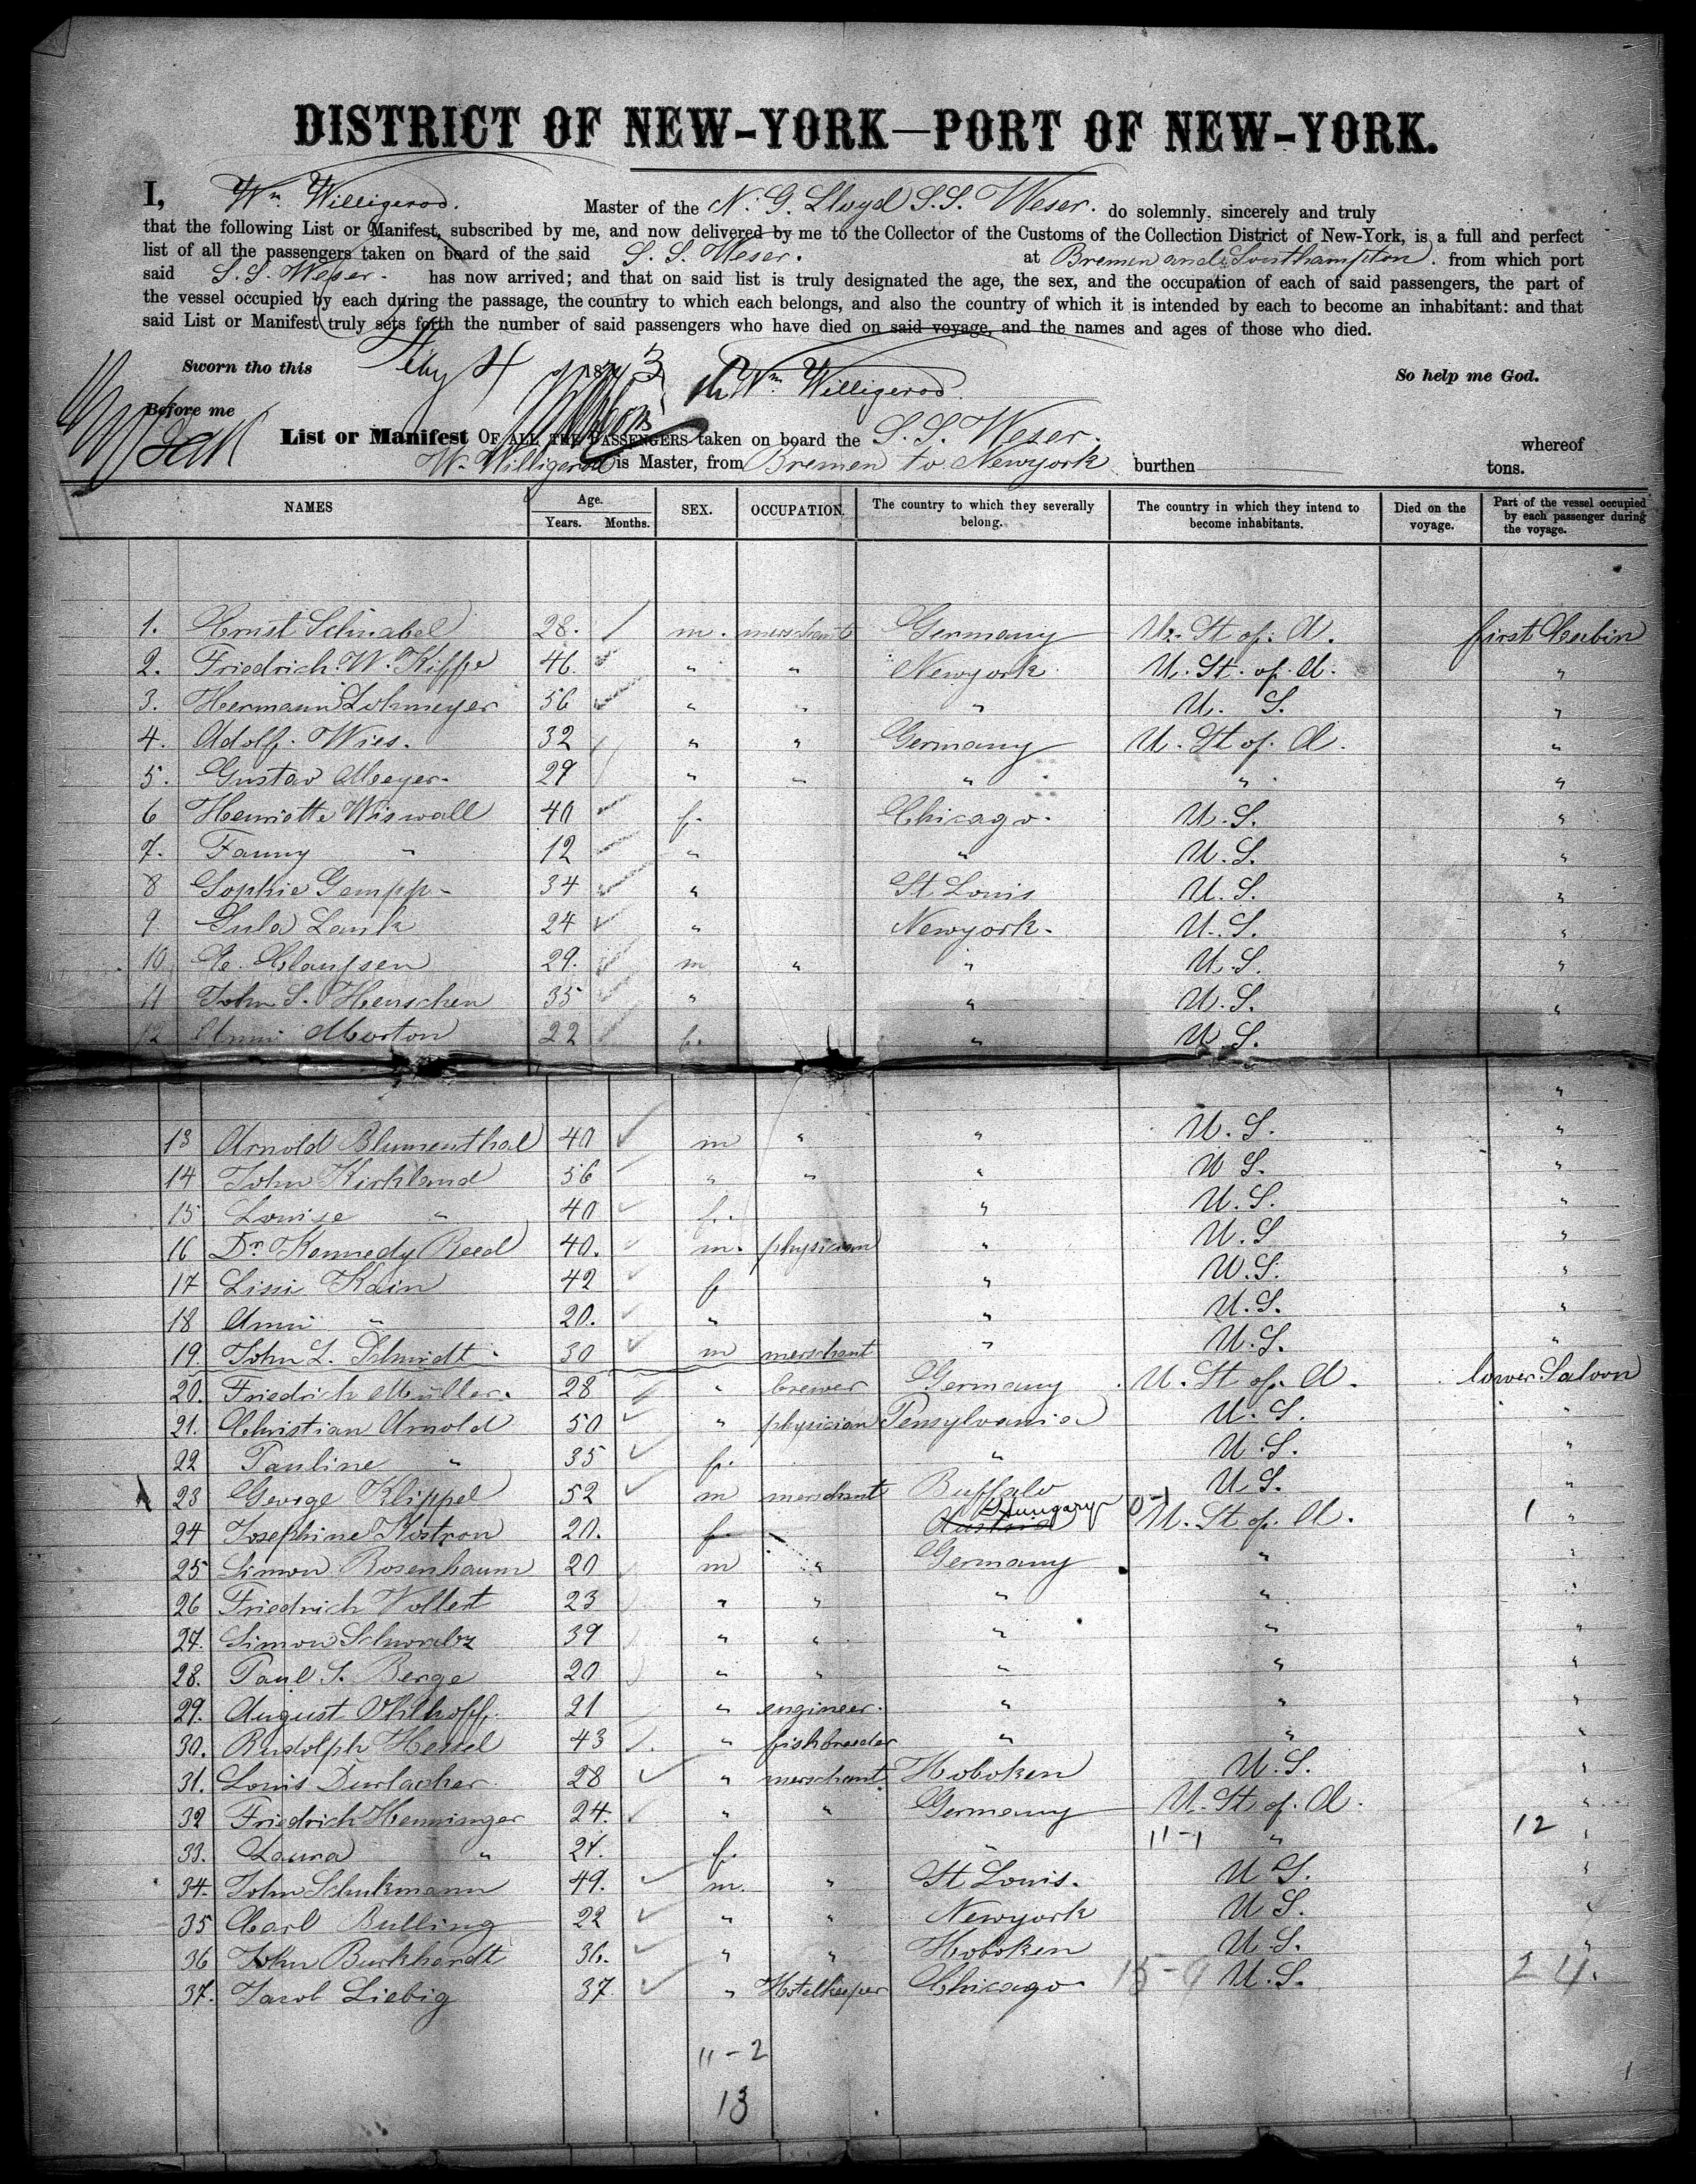 DISTRICT OF NEW-YORK—PORT OF NEW-YORK.
I, Wm. Willigerod. Master of the N. G. Lloyd S.S. Weser. do solemnly, sincerely and truly
that the following List or Manifest, subscribed by me, and now delivered by me to the Collector of the Customs of the Collection District of New-York, is a full and perfect
list of all the passengers taken on board of the said S. S. Weser. at Bremen and Southampton. from which port
said S. S. Weser. has now arrived; and that on said list is truly designated the age, the sex, and the occupation of each of said passengers, the part of
the vessel occupied by each during the passage, the country to which each belongs, and also the country of which it is intended by each to become an inhabitant: and that
said List or Manifest truly sets forth the number of said passengers who have died on said voyage, and the names and ages of those who died.
Sworn tho this 4 187 3 Wm. Willigerod. So help me God.
Before me
List or Manifest OF ALL THE PASSENGERS taken on board the S. S. Weser. whereof
W. Willigerod is Master, from Bremen to Newyork burthen tons.
NAMES Age. Years. Months. SEX. OCCUPATION. The country to which they severally belong. The country in which they intend to become inhabitants. Died on the voyage. Part of the vessel occupied by each passenger during the voyage.
1. Ernst Schnabel 28. m. merschant Germany U. St. of. A. first Cabin
2. Friedrich. W. Kipp 46. " " Newyork U. St. of. A. "
3. Hermann Lohmeyer 56 " " " U. S. "
4. Adolf. Wies. 32 " " Germany U. St of. A. "
5. Gustav Meyer. 27 " " " " "
6 Henriette Wiswall 40 f. Chicago. U. S. "
7. Fanny " 12 " " U. S. "
8 Sophie Gempp 34 " St Louis U. S. "
9. Lank 24 " Newyork. U. S. "
10 C. Claussen 29. m " " U. S. "
11 John S. Henschen 35 " " U. S. "
12 Anni Morton 22 f. " U. S. "
13 Arnold Blumenthal 40 m " " U. S. "
14 John Kirkland 56 " " " U S. "
15 Louise " 40 f. " U. S. "
16 Dr. Kennedy Reed 40. m. physician " U. S "
17 Lissi Kain 42 f " U. S. "
18 Anni " 20. " " U. S. "
19. John L. Schmidt 30 m merschant " U. S. "
20. Friedrich Müller. 28 " brewer Germany U. St of. A. lower Saloon
21. Christian Arnold 50 " physician Pensylvania U. S. "
22 Pauline " 35 f. " U. S. "
23 George Klippel 52 m merschant Buffalo U S. "
24 Josephine Kostron 20. f. Austria Hungary 0-1 U. St of. A. 1 "
25 Simon Rosenbaum 20 m " Germany " "
26 Friedrich Vollert 23 " " " " "
27. Simon Schwabz 39 " " " " "
28. Paul S. Berge 20 " " " " "
29. August Ohlhoff. 21 " engineer. " " "
30. Rudolph Hessel 43 " fishbreeder " " "
31. Louis Durlacher. 28 " merschant. Hoboken U. S. "
32 Friedrich Henninger 24. " " Germany U. St of. A. "
33. Laura " 24. f. " 11-1 " 12 "
34. John Schukmann 49. m. " St Louis. U S. "
35 Carl Bulling 22 " " Newyork U S. "
36 John Burkhardt 36. " " Hoboken U. S. "
37. Jacob Liebig 37. " Hotelkeeper Chicago 15-9 U. S. 24.
11-2
13